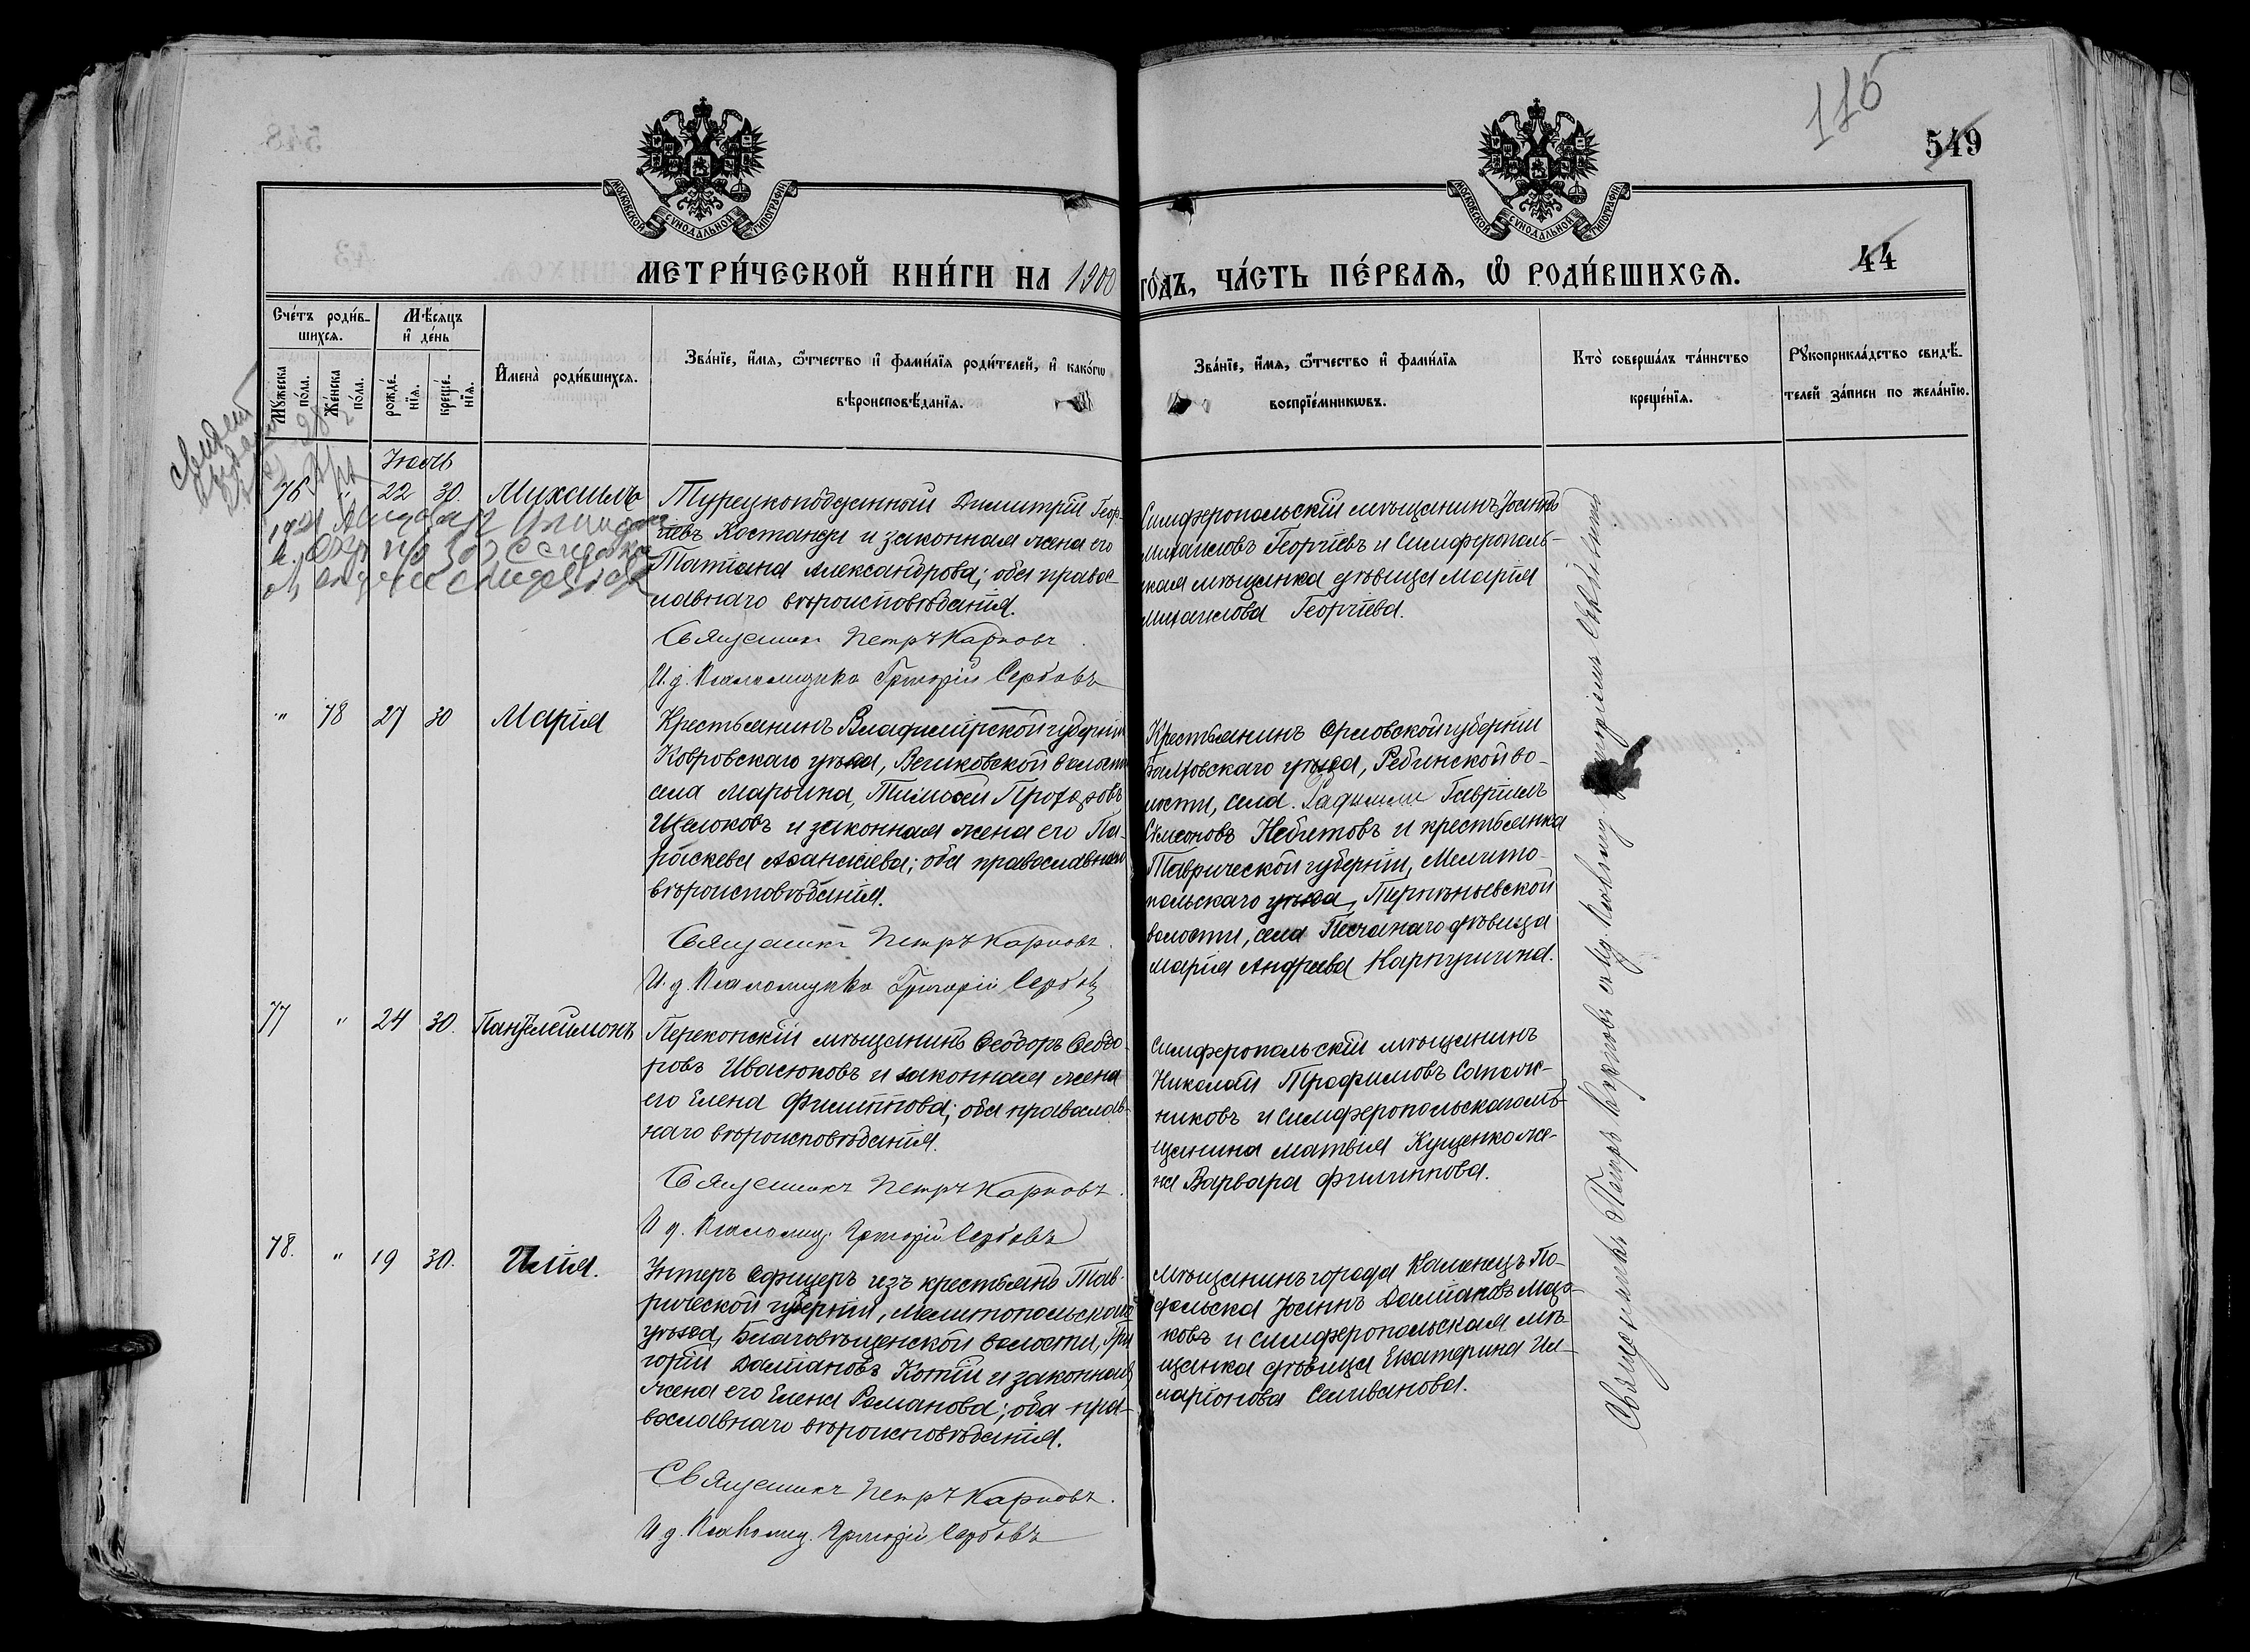 115
549
44
МОСКОВСКОЙ СѴНОДАЛЬНОЙ ТИПОГРАФІИ
МОСКОВСКОЙ СѴНОДАЛЬНОЙ ТИПОГРАФІИ
МЕТРИ́ЧЕСКОЙ КНИ́ГИ НА 1900 ГО́ДЪ, ЧА́СТЬ ПЕ́РВАѦ, Ѿ РОДИ́ВШИХСѦ.
Сче́тъ роди́в-
шихсѧ.
Мꙋжеска по́ла.
Же́нска по́ла.
Мѣ́сѧцъ и҆ де́нь
рожде́-
нїѧ.
креще́-
нїѧ.
И҆мена̀ роди́вшихсѧ.
Зва́нїе, и҆́мѧ, ѻ҆́тчество и҆ фами́лїѧ роди́телей, и҆ како́гѡ
вѣроисповѣ́данїѧ.
Зва́нїе, и҆́мѧ, ѻ҆́тчество и҆ фами́лїѧ
воспрїе́мникѡвъ.
Кто̀ соверша́лъ та́инство
креще́нїѧ.
Рꙋкоприкла́дство свидѣ́-
телей за́писи по жела́нїю.
Іюль
76 " 22 30. Михаилъ
Турецкоподданный Димитрій Геор-
гіевъ Костанди и законная жена его
Татіана Александрова; оба правос-
лавнаго вѣроисповѣданія.
Священникъ Петръ Карповъ.
И. д. Псаломщика Григорій Сербовъ
Симферопольскій мѣщанинъ Іоаннъ
Михаиловъ Георгіевъ и Симферополь-
ская мѣщанка дѣвица Марія
Михаилова Георгіева.
" 78 27 30 Марія
Крестьянинъ Владимірской губерніи
Ковровскаго уѣзда, Великовской волости
села Марьина, Тимоѳей Прохоровъ
Щелоковъ и законная жена его Па-
раскева Аѳанасіева; оба православнаго
вѣроисповѣданія.
Священникъ Петръ Карповъ.
И. д. Псаломщика Григорій Сербовъ
Крестьянинъ Орловской губерніи
уѣзда, Ребинской во-
лости, села Гавріилъ
Симеоновъ и крестьянка
Таврической губерніи, Мелито-
польскаго уѣзда, Терпѣньевской
волости, села Песчанаго дѣвица
Марія Андреева
77 " 24 30. Пантелеимонъ
Перекопскій мѣщанинъ Ѳеодоръ Ѳеодо-
ровъ Ивасюковъ и законная жена
его Елена Филиппова; оба православ-
наго вѣроисповѣданія.
Священникъ Петръ Карповъ.
И. д. Псаломщ. Григорій Сербовъ
Симферопольскій мѣщанинъ
Николай Трофимовъ Сапож-
никовъ и Симферопольскаго мѣ-
щанина Матвія Кущенко же-
на Варвара Филиппова.
78. " 19 30. Илія.
Унтеръ Офицеръ изъ крестьянъ Тав-
рической губерніи, Мелитопольскаго
уѣзда, Благовѣщенской волости, Гри-
горій Даміановъ Котій и законная
жена его Елена Романова; оба пра-
вославнаго вѣроисповѣданія.
Священникъ Петръ Карповъ.
И. д. Псаломщ. Григорій Сербовъ
Мѣщанинъ города Каменецъ По-
дольска Іоаннъ Даміановъ
и Симферопольская мѣ-
щанка дѣвица Екатерина Ил-
ларіонова Селиванова.
Священникъ Петръ Карповъ съ Григоріемъ Сербовымъ